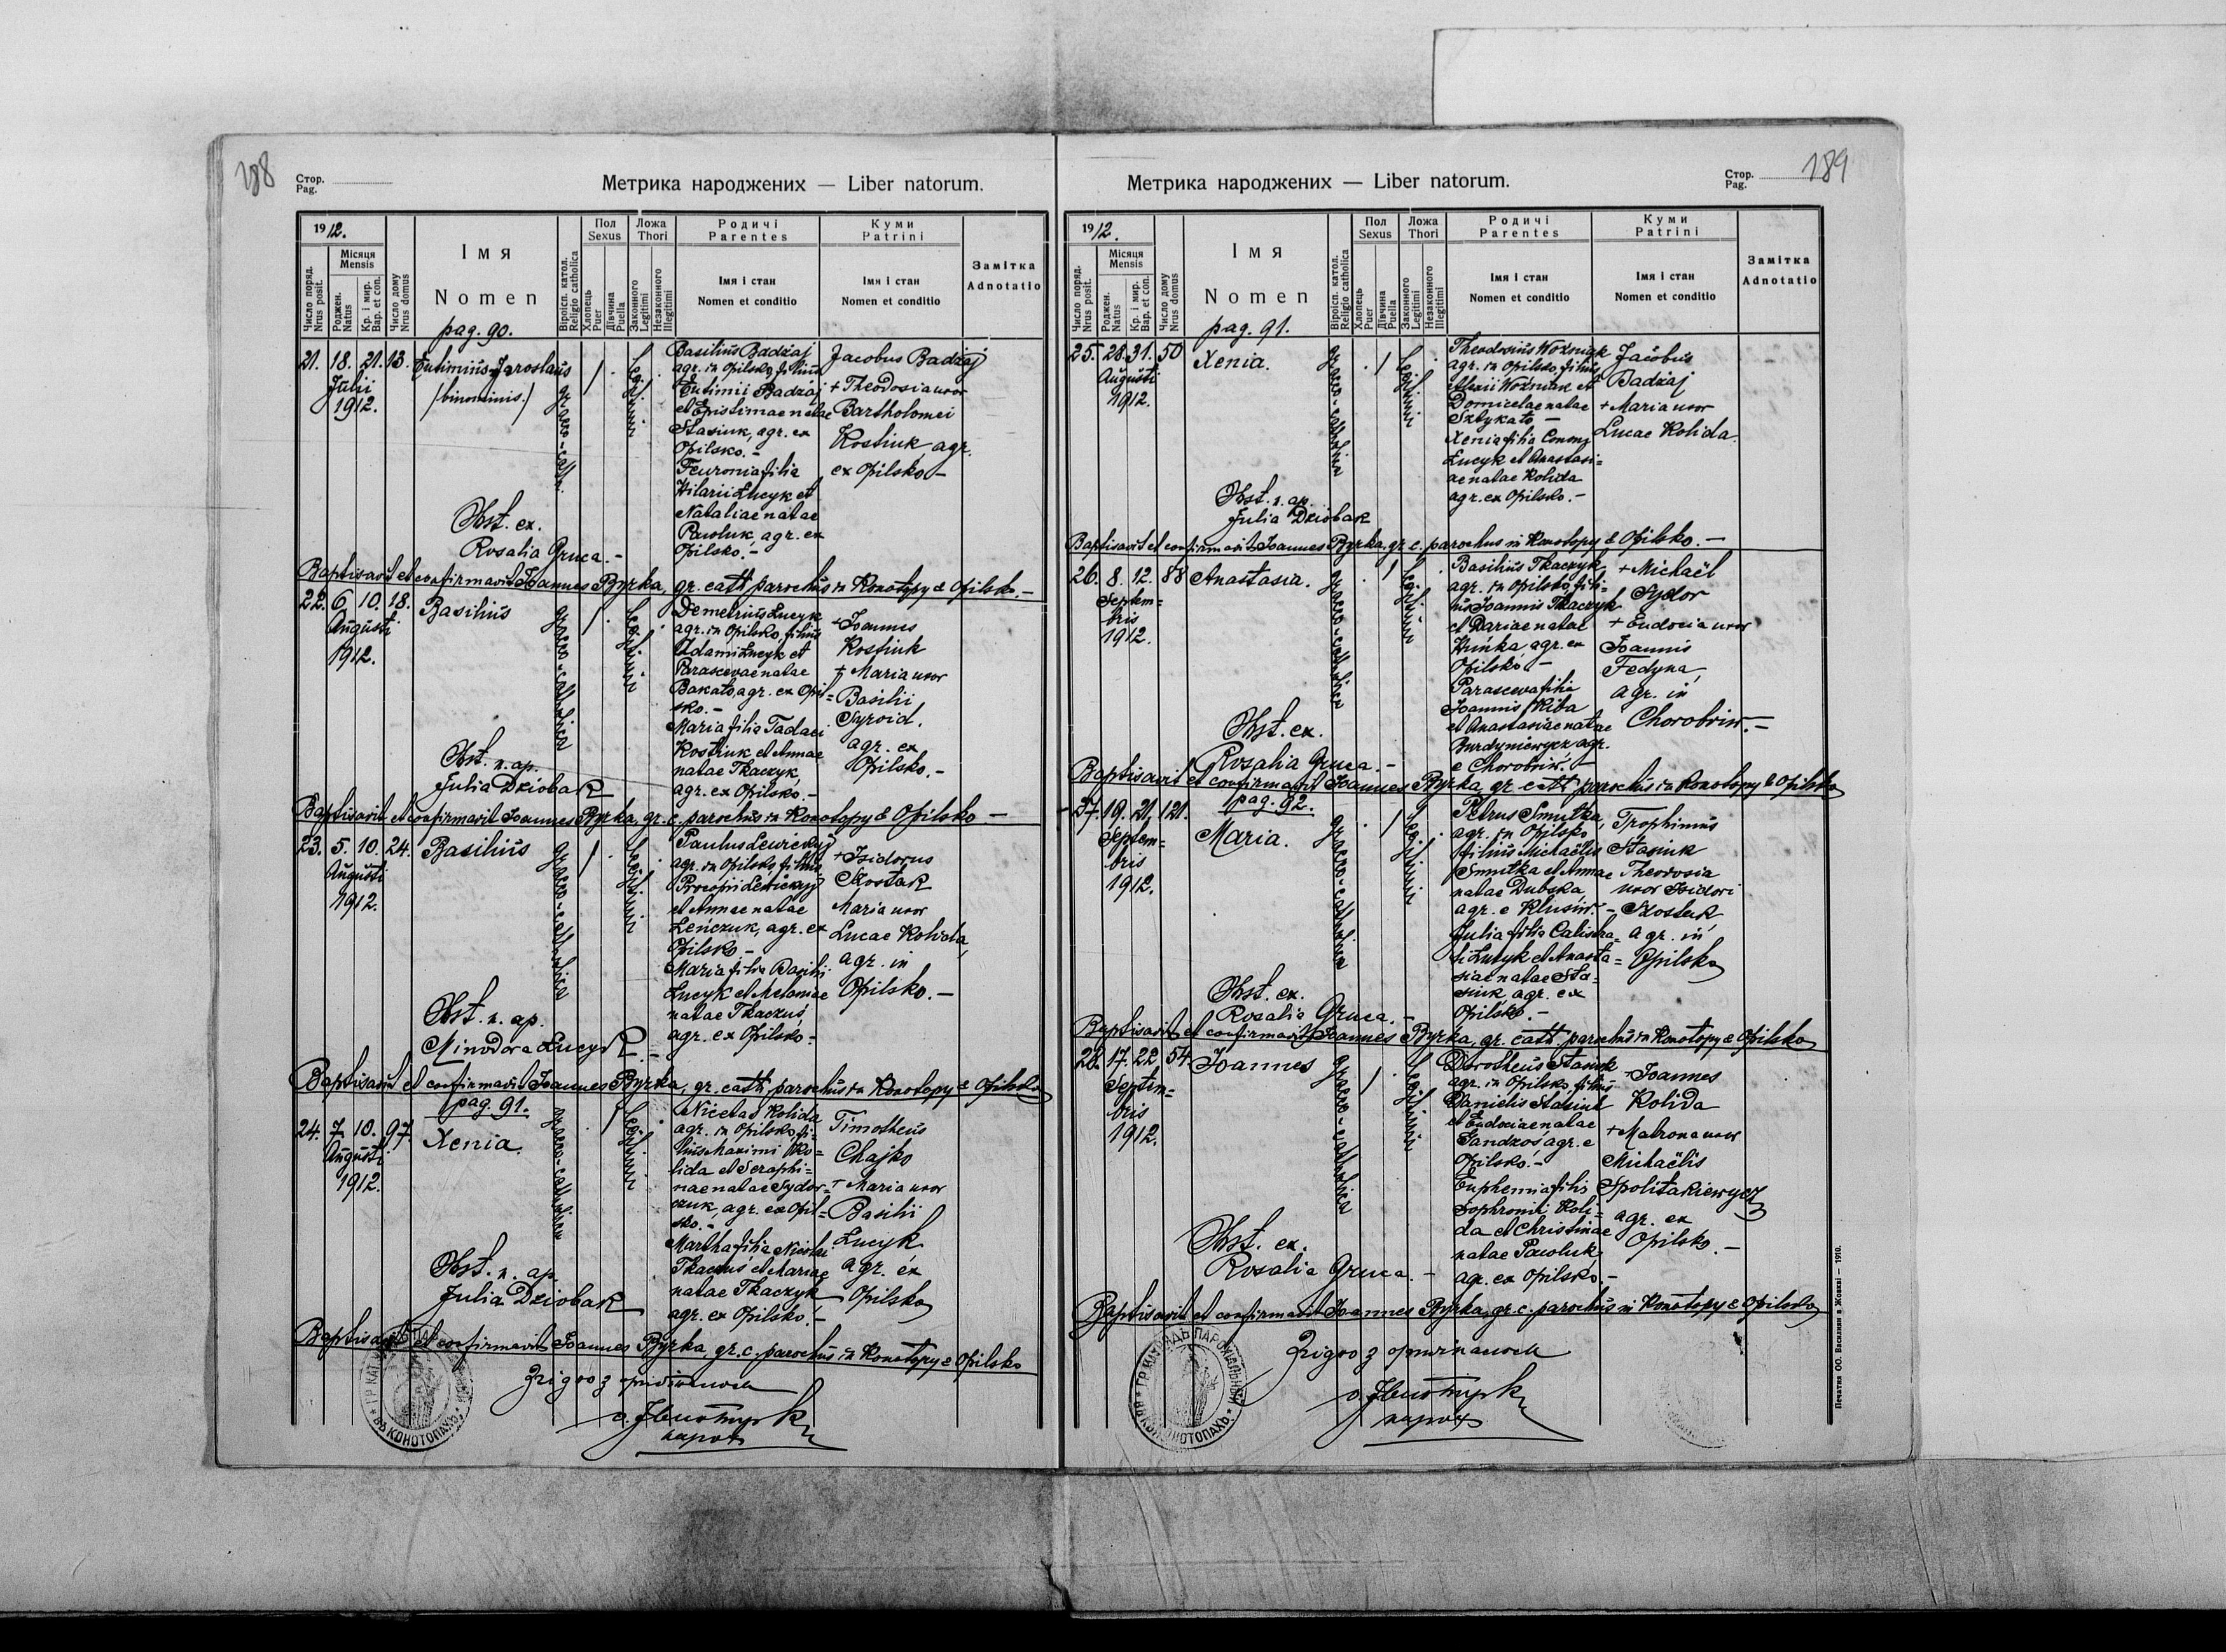 188
Стор.
Pag.
Метрика народжених — Liber natorum.
1912.
Місяця
Mensis
Число поряд.
Nrus posit.
Роджен.
Natus
Кр. і мир.
Bap. et con.
Число дому
Nrus domus
Імя
Nomen
pag. 90.
Віроісп. катол.
Religio catholica
Пол
Sexus
Хлопець
Puer
Дівчина
Puella
Ложа
Thori
Законного
Legitimi
Незаконного
Illegitimi
Родичі
Parentes
Імя і стан
Nomen et conditio
Куми
Patrini
Імя і стан
Nomen et conditio
Замітка
Adnotatio
21. 18. 21. 13. Eutimius-Jaroslaus
Julii
1912.
/binominis./
graeco-cath.
1
Legitimi
Basilius Badżaj
agr. in Opilsko, filius
Eutimii Badżaj
et Epistimae natae
Stasiuk, agr. ex
Opilsko. -
Feuronia filia
Hilarii Łucyk et
Nataliae natae
Pawluk, agr. ex
Opilsko. -
Jacobus Badżaj
+ Theodosia uxor
Bartholomei
Kostiuk, agr.
ex Opilsko -
Obst. ex.
Rosalia Gruca. -
Baptisavit et confirmavit Joannes Byrka, gr. cath. parochus in Konotopy & Opilsko. -
22. 6. 10. 18. Basilius
Augusti
1912.
graeco-catholica
1
Legitimi
Demetrius Łucyk
agr. in Opilsko, filius
Adami Łucyk et
Parascevae natae
Bakato, agr. ex Opil=
sko. -
Maria filia Tadaei
Kostiuk et Annae
natae Tkaczyk,
agr. ex Opilsko. -
+ Joannes
Kostiuk
+ Maria uxor
Basilii
Syroid,
agr. ex
Opilsko. -
Obst. n. ap.
Julia Dziobak
Baptisavit et confirmavit Joannes Byrka, gr. c. parochus in Konotopy & Opilsko -
23. 5. 10. 24. Basilius
Augusti
1912.
graeco-catholica
1
Legitimi
Paulus Lewickyj
agr. in Opilsko, filius
Procopii Lewickyj
et Annae natae
Leńczuk, agr. ex
Opilsko -
Maria filia Basilii
Łucyk et Melaniae
natae Tkaczus,
agr. ex Opilsko -
+ Isidorus
Skostak
Maria uxor
Lucae Kolida,
agr. in
Opilsko. -
Obst. n. ap.
Minodora Łucyk -
Baptisavit et confirmavit Joannes Byrka, gr. cath. parochus in Konotopy & Opilsko
pag. 91.
24. 7. 10. 97. Xenia.
Augusti
1912.
graeco-catholica
1
Legitimi
Nicetas Kolida
agr. in Opilsko, fi=
lius Maximi Ko=
lida et Seraphi=
nae natae Sydor=
czuk, agr. ex Opil=
sko. -
Martha filia Nicolai
Tkaczus et Mariae
natae Tkaczyk
agr. ex Opilsko. -
Timotheus
Chajko
+ Maria uxor
Basilii
Łucyk
agr. ex
Opilsko
Obst. n. ap.
Julia Dziobak
Baptisavit et confirmavit Joannes Byrka gr. c. parochus in Konotopy & Opilsko
Згідно з оригіналом
парох
ВЪ КОНОТОПАХЪ
189
Стор.
Pag.
Метрика народжених — Liber natorum.
1912.
Місяця
Mensis
Число поряд.
Nrus posit.
Роджен.
Natus
Кр. і мир.
Bap. et con.
Число дому
Nrus domus
Імя
Nomen
pag. 91.
Віроісп. катол.
Religio catholica
Пол
Sexus
Хлопець
Puer
Дівчина
Puella
Ложа
Thori
Законного
Legitimi
Незаконного
Illegitimi
Родичі
Parentes
Імя і стан
Nomen et conditio
Куми
Patrini
Імя і стан
Nomen et conditio
Замітка
Adnotatio
25. 28. 31. 50 Xenia.
Augusti
1912.
graeco-catholica
1
Legitimi
Theodosius Woźniak
agr. in Opilsko, filius
Alexii Woźniak et
Domicelae natae
Sztykato -
Xenia filia
Łucyk et Anastasi=
ae natae Kolida
agr. ex Opilsko. -
Jacobus
Badżaj
+ Maria uxor
Lucae Kolida.
Obst. n. ap.
Julia Dziobak
Baptisavit et confirmavit Joannes Byrka, gr. c. parochus in Konotopy & Opilsko. -
26. 8. 12. 88 Anastasia.
Septem=
bris
1912.
graeco-catholica
1
Legitimi
Basilius Tkaczyk,
agr. in Opilsko, fili=
us Joannis Tkaczyk
et Dariae natae
Huńka, agr. ex
Opilsko -
Parasceva filia
Joannis Kiba
et Anastasiae natae
Burdyniewycz agr.
e Chorobriw. -
+ Michaël
Sydor
+ Eudocia uxor
Joannis
Fedyna,
agr. in
Chorobriw. -
Obst. ex.
Rosalia Gruca. -
Baptisavit et confirmavit Joannes Byrka, gr. cath. parochus in Konotopy & Opilsko
pag. 92.
27. 19. 21. 121. Maria.
Septem=
bris
1912.
graeco-catholica
1
Legitimi
Petrus Smutka,
agr. in Opilsko
filius Michaëlis
Smutka et Annae
natae Dubska,
agr. e Klusiw. -
Julia filia Calistra=
ti Łucyk et Anasta=
siae natae Sta=
siuk, agr. ex
Opilsko. -
Trophimus
Stasiuk
Theodosia
uxor Isidori
Skostak
agr. in
Opilsko
Obst. ex.
Rosalia Gruca. -
Baptisavit et confirmavit Joannes Byrka, gr. cath. parochus in Konotopy & Opilsko
28. 17. 22. 54. Joannes
Septem=
bris
1912.
graeco-catholica
1
Legitimi
Dorotheus Stasiuk
agr. in Opilsko, filius
Danielis Stasiuk
et Eudociae natae
Sandzoś, agr. e
Opilsko. -
Euphemia filia
Sophronii Koli=
da et Christinae
natae Pawluk,
agr. ex Opilsko. -
+ Joannes
Kolida
+ Matrona uxor
Michaëlis
Spolitakiewycz
agr. ex
Opilsko. -
Obst. ex.
Rosalia Gruca. -
Baptisavit et confirmavit Joannes Byrka, gr. c. parochus in Konotopy & Opilsko
Згідно з оригіналом
парох
ВЪ КОНОТОПАХЪ
Печатня ОО. Василиян в Жовкві — 1910.